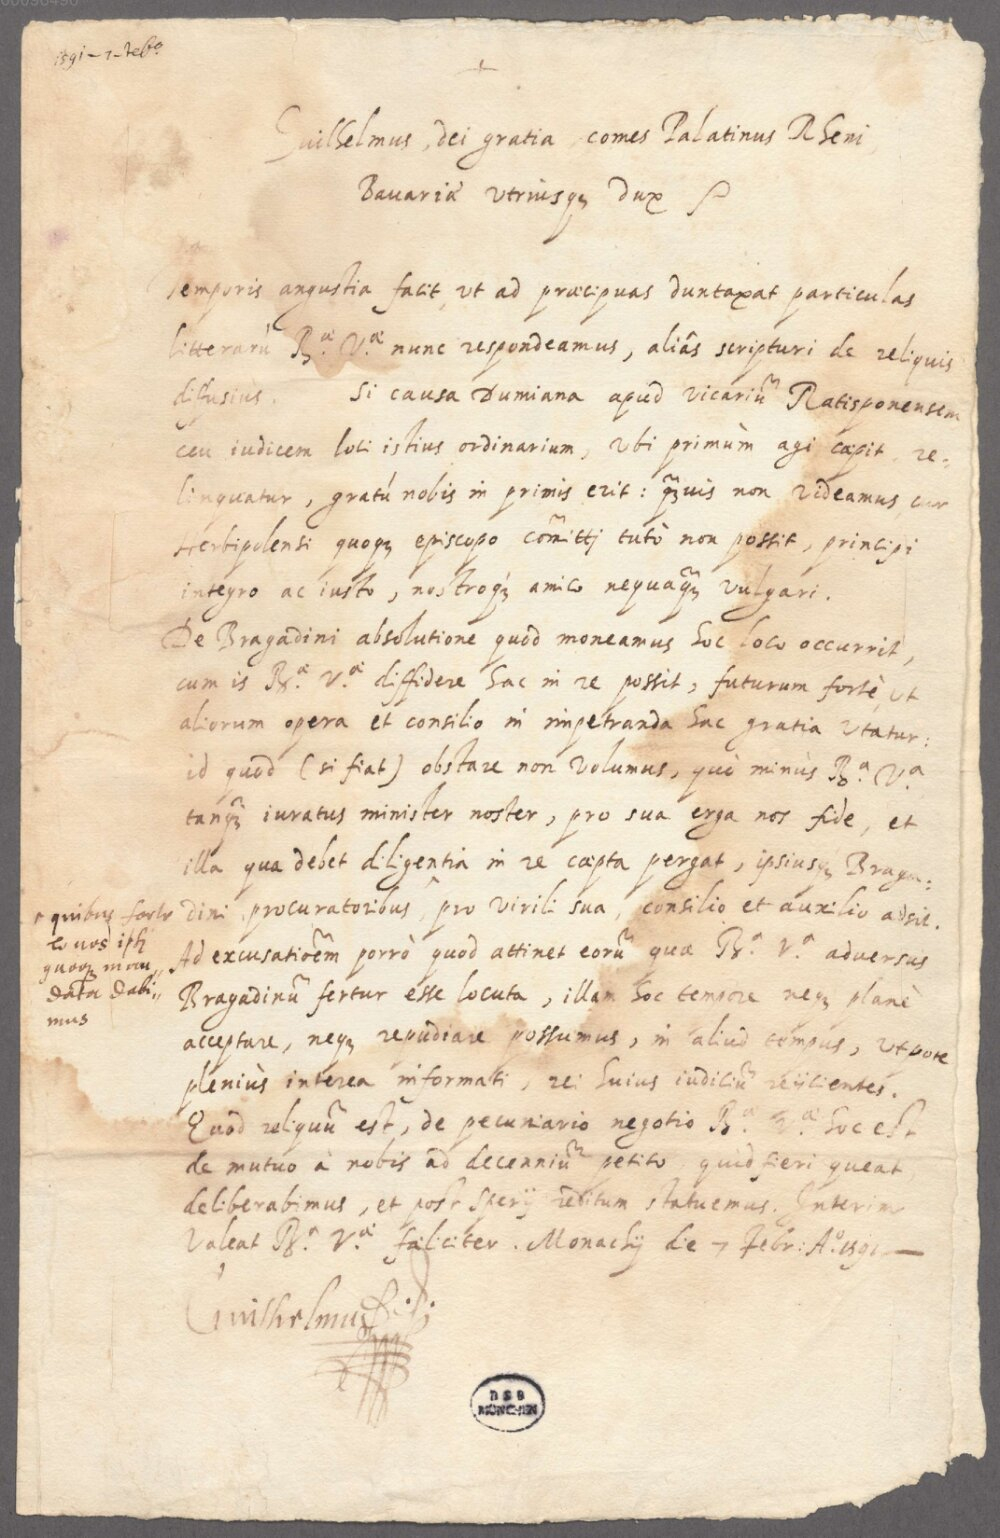 1591 – 7 – Feb.º
Guilhelmus, dei gratia, comes Palatinus Rheni,
Bauariæ vtriusqȝ dux
Temporis angustia facit, vt ad præcipuas duntaxat particulas
litterarū R.æ V.æ nunc respondeamus, aliâs scripturi de reliquis
diffusius. Si causa Dumiana apud vicariū Ratisponensem
ceu iudicem loci istius ordinarium, vbi primùm agi cæpit, re-
linquatur, gratū nobis in primis erit: qȝuis non videamus, cur
Herbipolensi quoqȝ episcopo cōmittj tutò non possit, principi
integro ac iusto, nostroqȝ amico nequaqȝ vulgari.
De Bragadini absolutione quòd moneamus hoc loco occurrit,
cum is R.æ V.æ diffidere hac in re possit, futurum fortè, vt
aliorum opera et consilio in impetranda hac gratia vtatur:
id quod (si fiat) obstare non volumus, quò minùs R.ª V.ª
tanqȝ iuratus minister noster, pro sua erga nos fide, et
illa qua debet diligentia in re cæpta pergat, ipsiusqȝ Braga-
dini procuratoribus, pro virili sua, consilio et auxilio adsit.
quibus fortè
et nos ipsi
quoqȝ man-
data dabi-
mus
Ad excusatiōem porrò quod attinet eorū quæ R.ª V.ª aduersus
Bragadinū fertur esse locuta, illam hoc tempore neqȝ planè
acceptare, neqȝ repudiare possumus, in aliud tempus, vtpote
pleniùs interea informati, rei huius iudiciū reijcientes.
Quod reliquū est, de pecuniario negotio R.æ V.æ hoc est
de mutuo à nobis ad decenniū petito, quid fieri queat
deliberabimus, et post Sperij reditum statuemus. Interim
Valeat R.ª V.ª fæliciter. Monachij die 7 Febr: Aº. 1591
Guilhelmus
B S B
MÜNCHEN